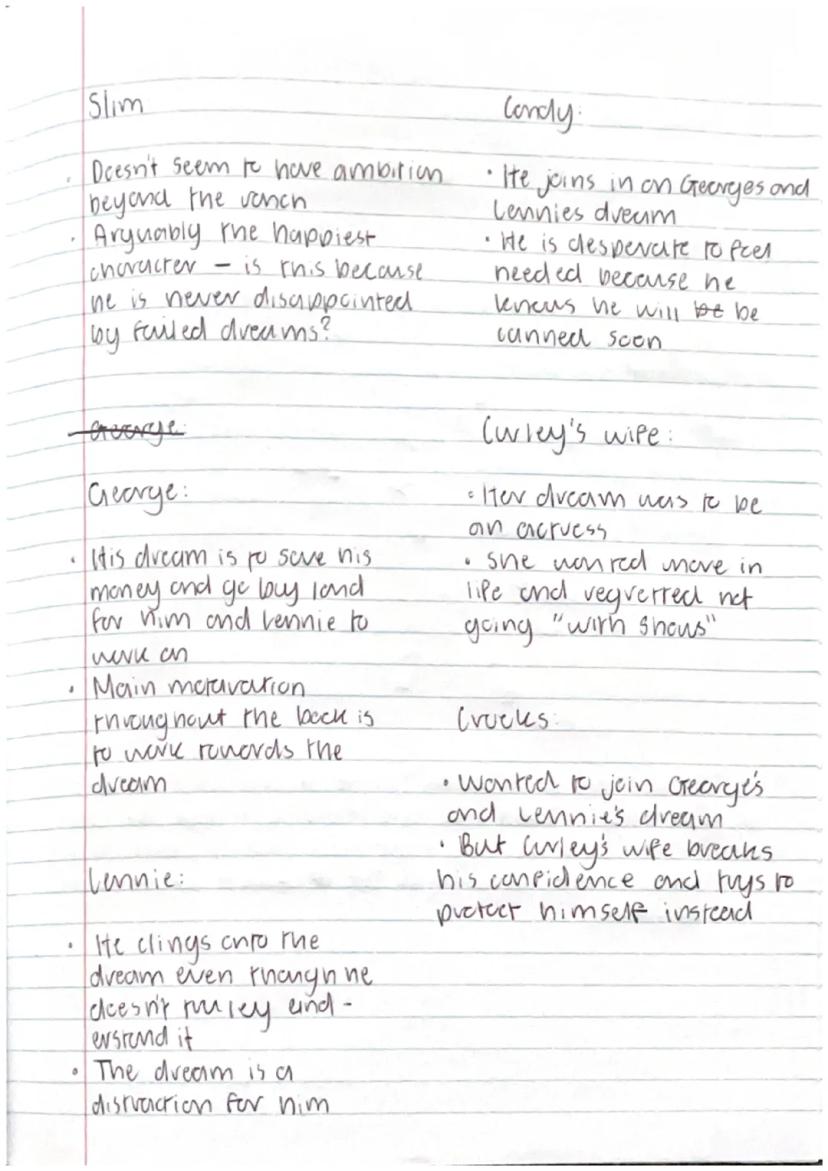 Slim
Doesn't seem to have ambition
beyond the ranch
· Arguably the happiest
character – is this because
he is never disappointed
by failed dreams?
George:
George:
· His dream is to save his
money and go buy land
for him and Lennie to
work on
· Main motavation
throughout the book is
to work towards the
dream
Lennie:
· He clings onto the
dream even though he
doesn't truley und-
erstand it
· The dream is a
distraction for him
Candy:
· He joins in on Georges and
Lennies dream
· He is desperate to feel
needed because he
knows he will be be
canned soon
Curley's wife:
· Her dream was to be
an actress
· She wanted more in
life and regretted not
going "with shows"
Crooks:
· Wanted to join George's
and Lennie's dream
· But Curley's wife breaks
his confidence and trys to
protect himself instead